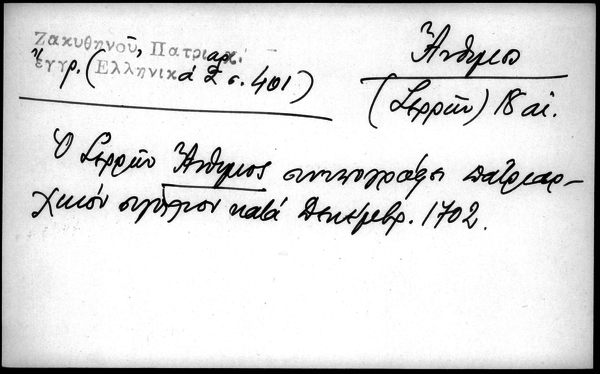 Ζακυθηνοῦ, Πατριαρχ.
ἔγγρ. (Ἑλληνικά 2 σ. 401)
Ἄνθιμος
(Σερρῶν) 18 αἰ.
Ὁ Σερρῶν Ἄνθιμος συνυπογράφει πατριαρ-
χικόν σιγίλλιον κατά Δεκέμβρ. 1702.